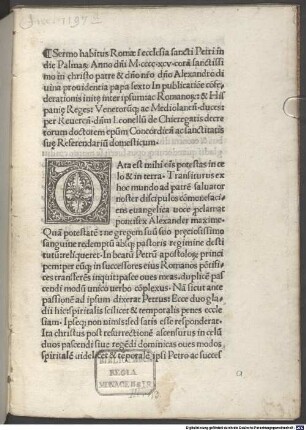 Inc. 1197
¶ Sermo habitus Romæ ĩ ecclesia sancti Petri in
die Palmaꝝ Anno dñi M.cccc.xcv. corã sanctissi
mo in christo patre & dño nr̃o dño Alexandro di
uina prouidentia papa sexto in publicatiõe cõfœ
derationis initę inter ipsum ac Romanoꝝ & His
panię Reges Venetosq̃ ac Mediolanen̄. ducẽ
per Reueren̄. dñm Leonellũ de Chieregatis decre
torum doctorem epũm Concordieñ ac sanctitatis
suę Referendariũ domesticum.
DAta est mihi oĩs potestas in cę
lo & in terra. Transiturus ex
hoc mundo ad patrẽ saluator
noster discipulos cõmonefaciẽs
euangelica uoce p̃clamat
pontifex Alexander maxime.
Quã potestatẽ ne gregem suũ suo pręciosissimo
sanguine redemptũ absq̃ pastoris regimine desti
tutũ relĩqueret. In beatũ Petrũ apostoloꝝ princi
pem: perq̃ eũ in successores eius Romanos põtifi
ces transferẽs inquit: pasce oues meas. duplicẽ pas
cendi modũ unico uerbo cõplexus. Nã sicut ante
passionẽ ad ipsum dixerat Petrus: Ecce duo gla
dii hic: spiritalis scilicet & temporalis penes eccle
siam. Ipseq̃ non nimis sed satis esse responderat.
Ita christus post resurrectionẽ ascensurus in cęlũ
duos pascendi siue regẽdi dominicas oues modos
spiritalẽ uidelicet & tẽporalẽ ipsi Petro ac succes
BIBLIOTHECA
REGIA
MONACENSIS